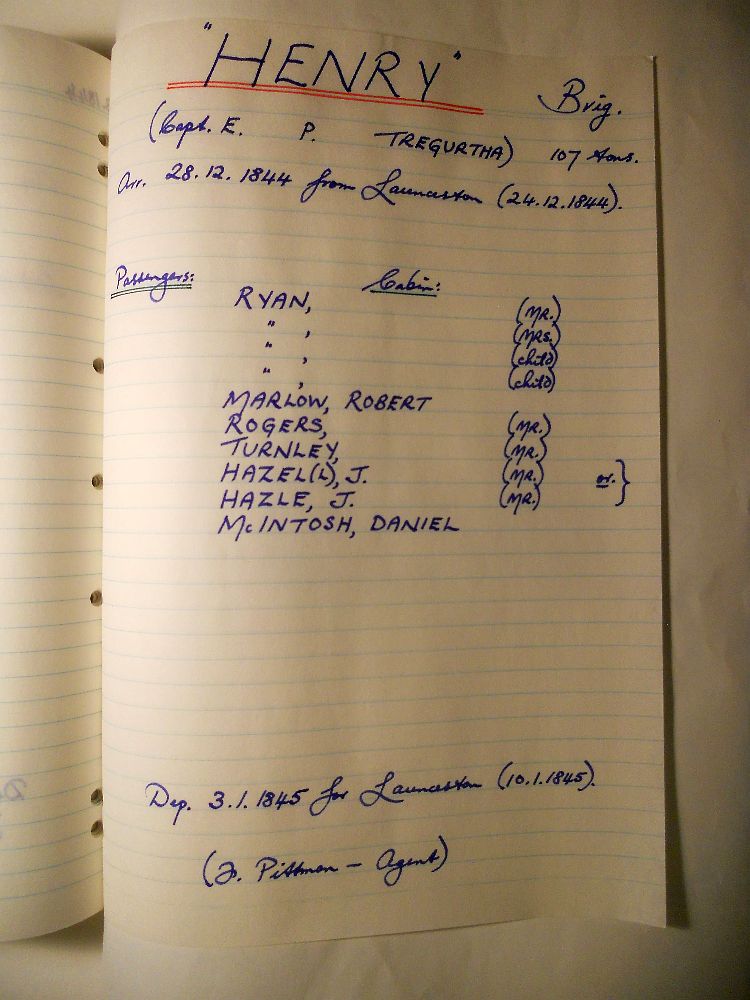 "HENRY" Brig.
(Capt. E. P. TREGURTHA) 107 tons.
Arr. 28.12.1844 from Launceston (24.12.1844).
Passengers: Cabin:
RYAN, (MR.)
" , (MRS.)
" , (child)
" , (child)
MARLOW, ROBERT
ROGERS, (MR.)
TURNLEY, (MR.)
HAZEL(L), J. (MR.) or. }
HAZLE, J. (MR.)
McINTOSH, DANIEL
Dep. 3.1.1845 for Launceston (10.1.1845).
(J. Pittman – Agent)